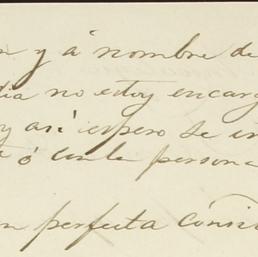 n y á nombre de
dia no estoy encarg
y así espero se
ó con la persona
n perfecta consi